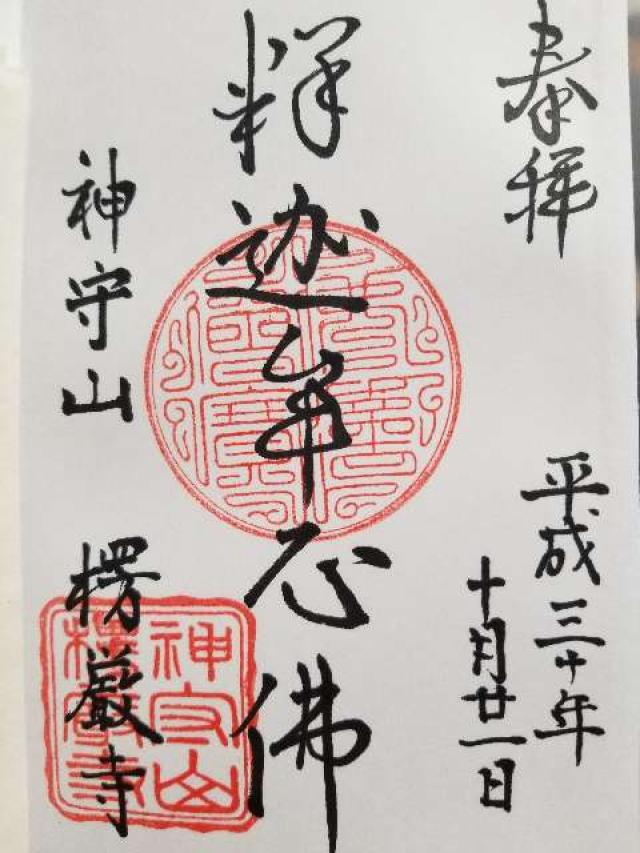 奉拝
平成三十年
十月廿一日
釋迦牟尼佛
神守山
楞厳寺
神守山
楞嚴寺